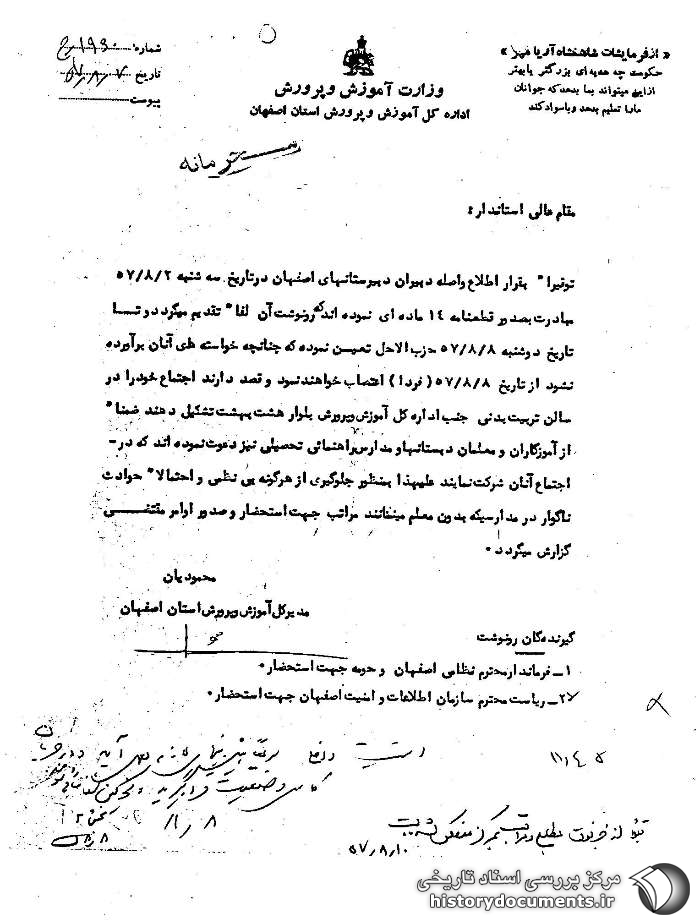 شماره: ۱۹۶۰ ح
تاریخ ۵۷،۸،۷
پیوست
وزارت آموزش و پرورش
اداره کل آموزش و پرورش استان اصفهان
« از فرمایشات شاهنشاه آریا مهر »
حکومت چه هدیه‌ای بزرگتر یا بهتر
از این میتواند بما بدهد که جوانان
ما را تعلیم بدهد و با سواد کند
محرمانه
مقام عالی استاندار :
توقیرا" بقرار اطلاع واصله دبیران دبیرستانهای اصفهان در تاریخ سه شنبه ۵۷/۸/۲
مبادرت بصدور قطعنامه ۱۴ ماده ای نموده اند که رونوشت آن لفا" تقدیم میگردد و تا
تاریخ دوشنبه ۵۷/۸/۸ ضرب الاجل تعیین نموده که چنانچه خواسته های آنان برآورده
نشود از تاریخ ۵۷/۸/۸ ( فردا ) اعتصاب خواهند نمود و قصد دارند اجتماع خود را در
سالن تربیت بدنی جنب اداره کل آموزش و پرورش بلوار هشت بهشت تشکیل دهند ضمنا"
از آموزگاران و معلمان دبستانها و مدارس راهنمائی تحصیلی نیز دعوت نموده اند که در-
اجتماع آنان شرکت نمایند علیهذا بمنظور جلوگیری از هرگونه بی نظمی و احتمالا" حوادث
ناگوار در مدارسیکه بدون معلم میمانند مراتب جهت استحضار و صدور اوامر مقتضی
گزارش میگردد .
محمودیان
مدیر کل آموزش و پرورش استان اصفهان
گیرندگان رونوشت
۱- فرماندار محترم نظامی اصفهان و حومه جهت استحضار .
۲- ریاست محترم سازمان اطلاعات و امنیت اصفهان جهت استحضار .
۸/۸
۵۷،۸،۱۰
مرکز بررسی اسناد تاریخی
historydocuments.ir